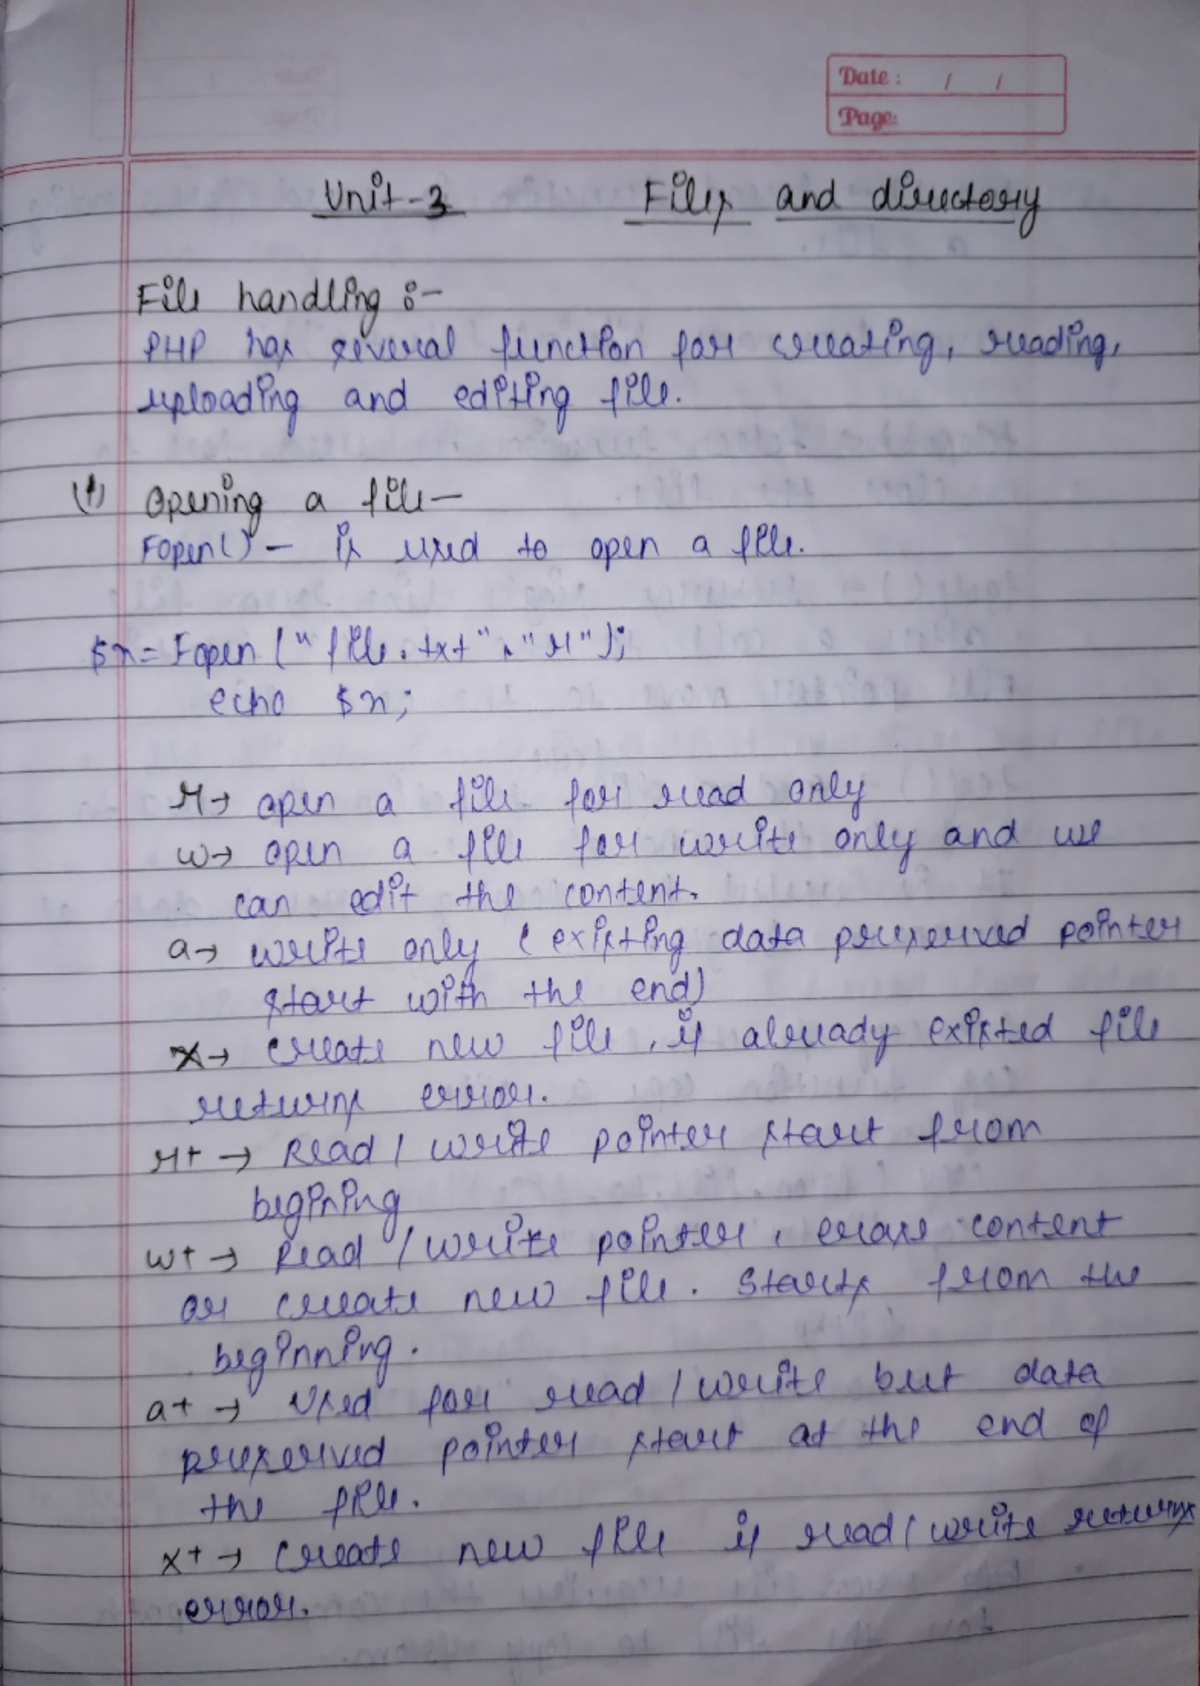 Date : / /
Page:
Unit-3 Files and directory
File handling :-
PHP has several function for creating, reading,
uploading and editing file.
(1) Opening a file—
Fopen() — is used to open a file.
$x = Fopen ("file.txt", "r");
echo $x;
r→ open a file for read only
w→ open a file for write only and we
can edit the content.
a→ write only (existing data preserved pointer
start with the end)
x→ create new file, if already existed file
returns error.
r+ → Read / write pointer start from
begining
w+ → Read / write pointer, erase content
or create new file. Starts from the
beginning.
a+ → Used for read / write but data
preserved pointer start at the end of
the file.
x+ → Create new file if read / write returns
error.